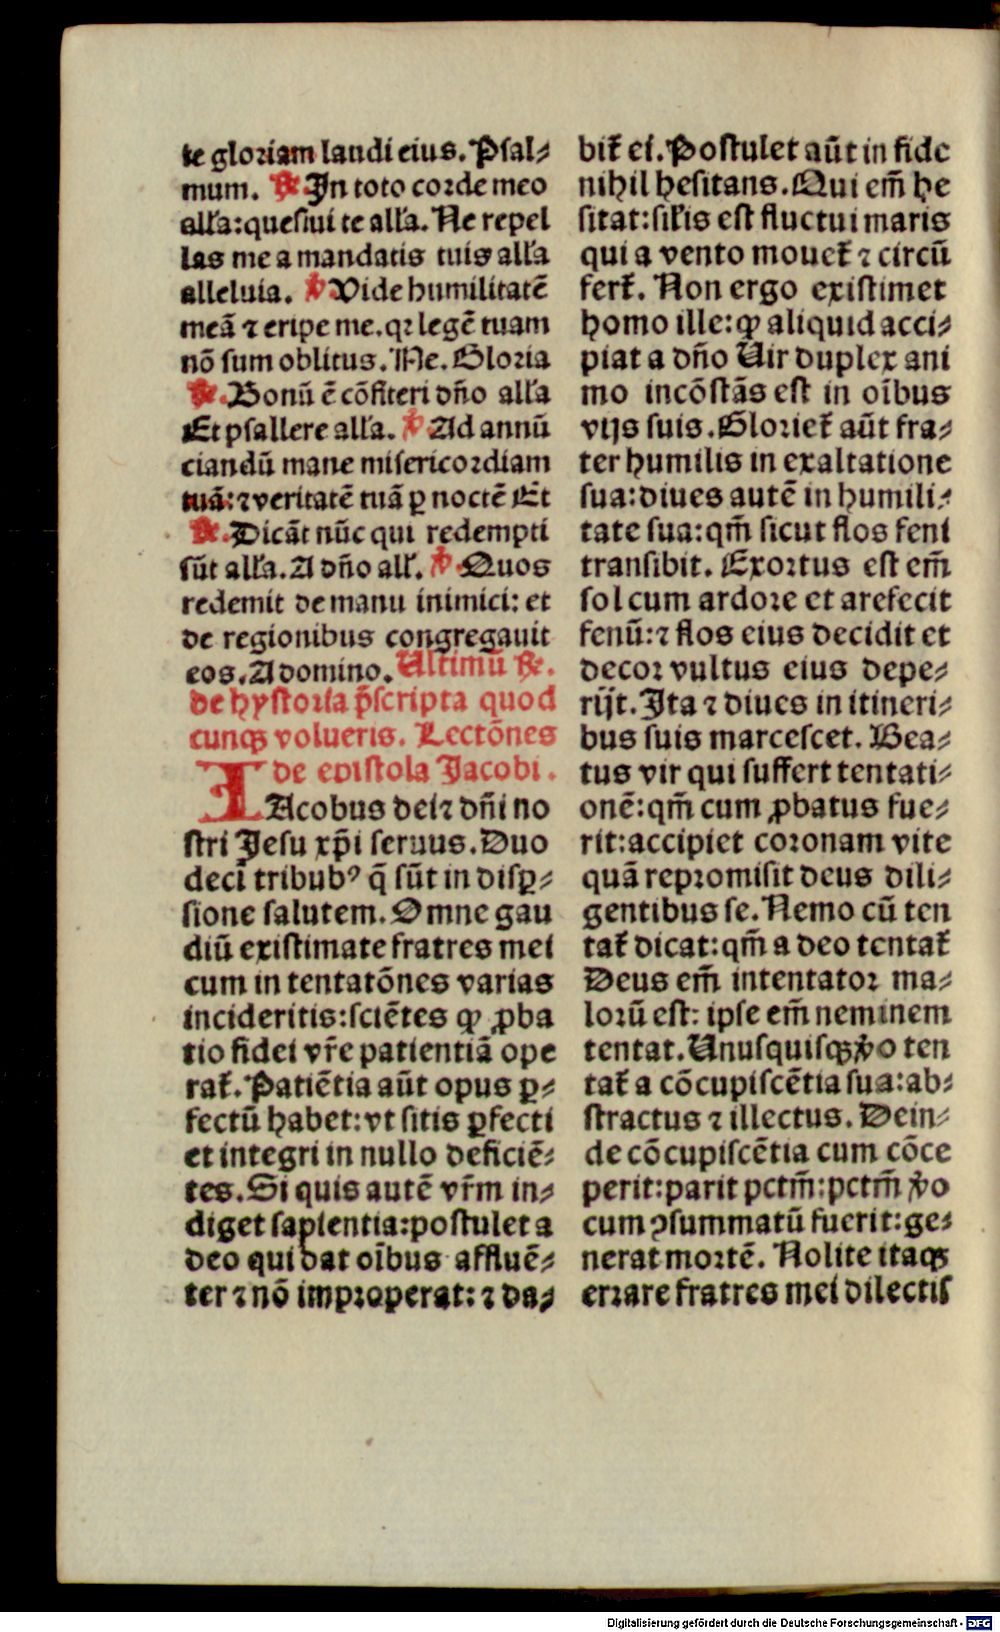 te gloriam laudi eius. Psal⸗
mum. ℟. In toto corde meo
alľa: quesiui te alľa. Ne repel
las me a mandatis tuis alľa
alleluia. ℣ Vide humilitatē
meā ⁊ eripe me. qꝛ legē tuam
nō sum oblitus. Ne. Gloria
℟. Bonū ē cōfiteri dño alľa
Et psallere alľa. ℣ Ad annū
ciandū mane misericordiam
tuā: ⁊ veritatē tuā ꝑ noctē Et
℟. Dicāt nūc qui redempti
sūt alľa. A dño alľ. ℣. Quos
redemit de manu inimici: et
de regionibus congregauit
eos. A domino. Ultimū ℟.
de hystoria p̄scripta quod
cunqꝫ volueris. Lectōnes
de epistola Jacobi.
IAcobus dei ⁊ dñi no
stri Jesu xp̄i seruus. Duo
deci tribubꝰ q̄ sūt in disꝑ⸗
sione salutem. Omne gau
diū existimate fratres mei
cum in tentatōnes varias
incideritis: sciētes ꝙ ꝓba
tio fidei vr̄e patientiā ope
rat̄. Patiētia aūt opus ꝑ⸗
fectū habet: vt sitis ꝑfecti
et integri in nullo deficiē⸗
tes. Si quis autē vr̄m in⸗
diget sapientia: postulet a
deo qui dat oībus affluē⸗
ter ⁊ nō improperat: ⁊ da⸗
bit̄ ei. Postulet aūt in fide
nihil hesitans. Qui em̄ he
sitat: siľis est fluctui maris
qui a vento mouet̄ ⁊ circū
fert̄. Non ergo existimet
homo ille: ꝙ aliquid acci⸗
piat a dño Uir duplex ani
mo incōstās est in oībus
vijs suis. Gloriet̄ aūt fra⸗
ter humilis in exaltatione
sua: diues autē in humili⸗
tate sua: qm̄ sicut flos feni
transibit. Exortus est em̄
sol cum ardore et arefecit
fenū: ⁊ flos eius decidit et
decor vultus eius depe⸗
rijt. Ita ⁊ diues in itineri⸗
bus suis marcescet. Bea⸗
tus vir qui suffert tentati⸗
onē: qm̄ cum ꝓbatus fue⸗
rit: accipiet coronam vite
quā repromisit deus dili⸗
gentibus se. Nemo cū ten
tat̄ dicat: qm̄ a deo tentat̄
Deus em̄ intentator ma⸗
lorū est: ipse em̄ neminem
tentat. Unusquisqꝫ v̊o ten
tat̄ a cōcupiscētia sua: ab⸗
stractus ⁊ illectus. Dein⸗
de cōcupiscētia cum cōce
perit: parit pctm̄: pctm̄ v̊o
cum ꝯsummatū fuerit: ge⸗
nerat mortē. Nolite itaqꝫ
errare fratres mei dilectis
Digitalisierung gefördert durch die Deutsche Forschungsgemeinschaft - DFG